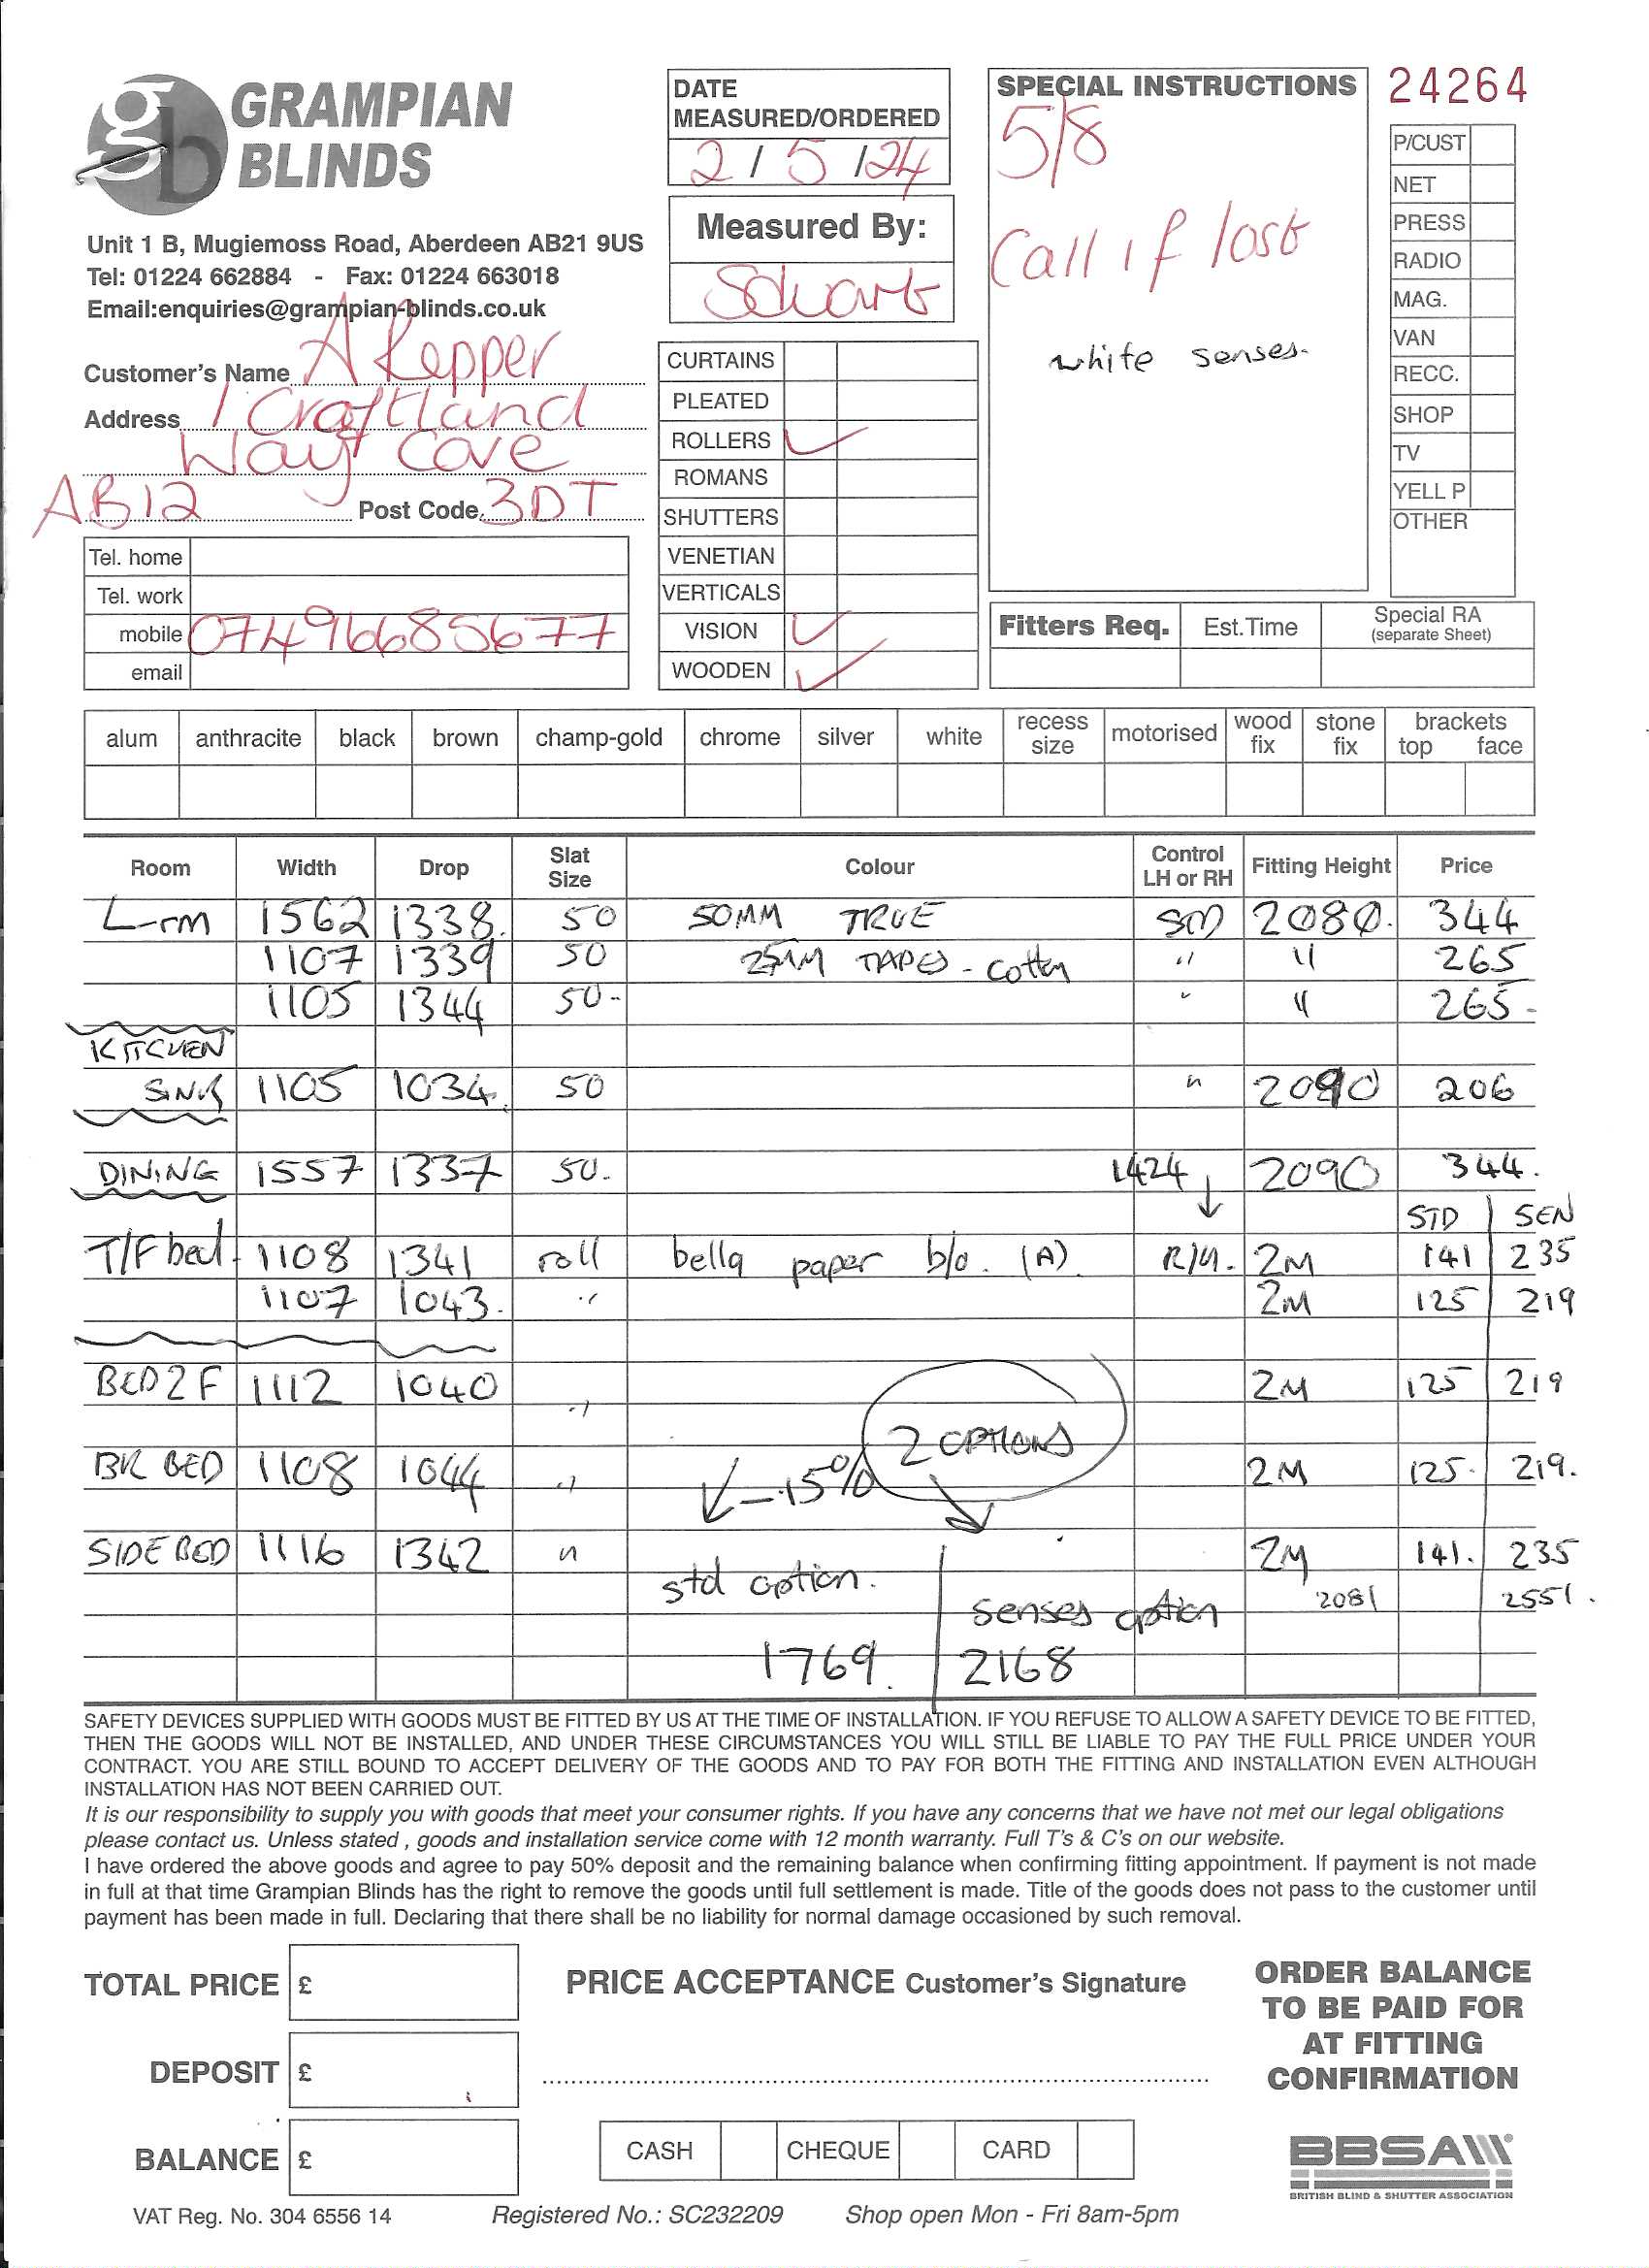 GRAMPIAN
BLINDS
Unit 1 B, Mugiemoss Road, Aberdeen AB21 9US
Tel: 01224 662884 - Fax: 01224 663018
Email:enquiries@grampian-blinds.co.uk
Customer's Name A Repper
Address 1 Craftland
Way Cove
AB12 Post Code 3DT
Tel. home
Tel. work
mobile 07496685677
email
DATE
MEASURED/ORDERED
2 / 5 /24
Measured By:
CURTAINS
PLEATED
ROLLERS ✓
ROMANS
SHUTTERS
VENETIAN
VERTICALS
VISION ✓
WOODEN ✓
SPECIAL INSTRUCTIONS
5/8
Call if lost
white senses.
24264
P/CUST
NET
PRESS
RADIO
MAG.
VAN
RECC.
SHOP
TV
YELL P
OTHER
Fitters Req. Est.Time Special RA
(separate Sheet)
alum anthracite black brown champ-gold chrome silver white recess size motorised wood fix stone fix brackets top face
Room Width Drop Slat Size Colour Control LH or RH Fitting Height Price
L-rm 1562 1338. 50 50MM TRUE SM 2080. 344
1107 1339 50 25MM TAPES - Cotton " " 265
1105 1344 50- " " 265-
KITCHEN
SINK 1105 1034 50 " 2090 206
DINING 1557 1337 50. 1424 ↓ 2090 344.
STD | SEN
T/F bed 1108 1341 roll bella paper b/o. (A). R/H. 2M 141 235
1107 1043. " 2M 125 219
BED 2 F 1112 1040 " 2M 125 219
2 OPTIONS
BK BED 1108 1044 " -15% 2M 125. 219.
SIDE BED 1116 1342 " 2M 141. 235
std option. 2081 2551.
senses option
1769. 2168
SAFETY DEVICES SUPPLIED WITH GOODS MUST BE FITTED BY US AT THE TIME OF INSTALLATION. IF YOU REFUSE TO ALLOW A SAFETY DEVICE TO BE FITTED,
THEN THE GOODS WILL NOT BE INSTALLED, AND UNDER THESE CIRCUMSTANCES YOU WILL STILL BE LIABLE TO PAY THE FULL PRICE UNDER YOUR
CONTRACT. YOU ARE STILL BOUND TO ACCEPT DELIVERY OF THE GOODS AND TO PAY FOR BOTH THE FITTING AND INSTALLATION EVEN ALTHOUGH
INSTALLATION HAS NOT BEEN CARRIED OUT.
It is our responsibility to supply you with goods that meet your consumer rights. If you have any concerns that we have not met our legal obligations
please contact us. Unless stated , goods and installation service come with 12 month warranty. Full T's & C's on our website.
I have ordered the above goods and agree to pay 50% deposit and the remaining balance when confirming fitting appointment. If payment is not made
in full at that time Grampian Blinds has the right to remove the goods until full settlement is made. Title of the goods does not pass to the customer until
payment has been made in full. Declaring that there shall be no liability for normal damage occasioned by such removal.
TOTAL PRICE £
DEPOSIT £
BALANCE £
PRICE ACCEPTANCE Customer's Signature
CASH CHEQUE CARD
ORDER BALANCE
TO BE PAID FOR
AT FITTING
CONFIRMATION
BBSA
BRITISH BLIND & SHUTTER ASSOCIATION
VAT Reg. No. 304 6556 14 Registered No.: SC232209 Shop open Mon - Fri 8am-5pm